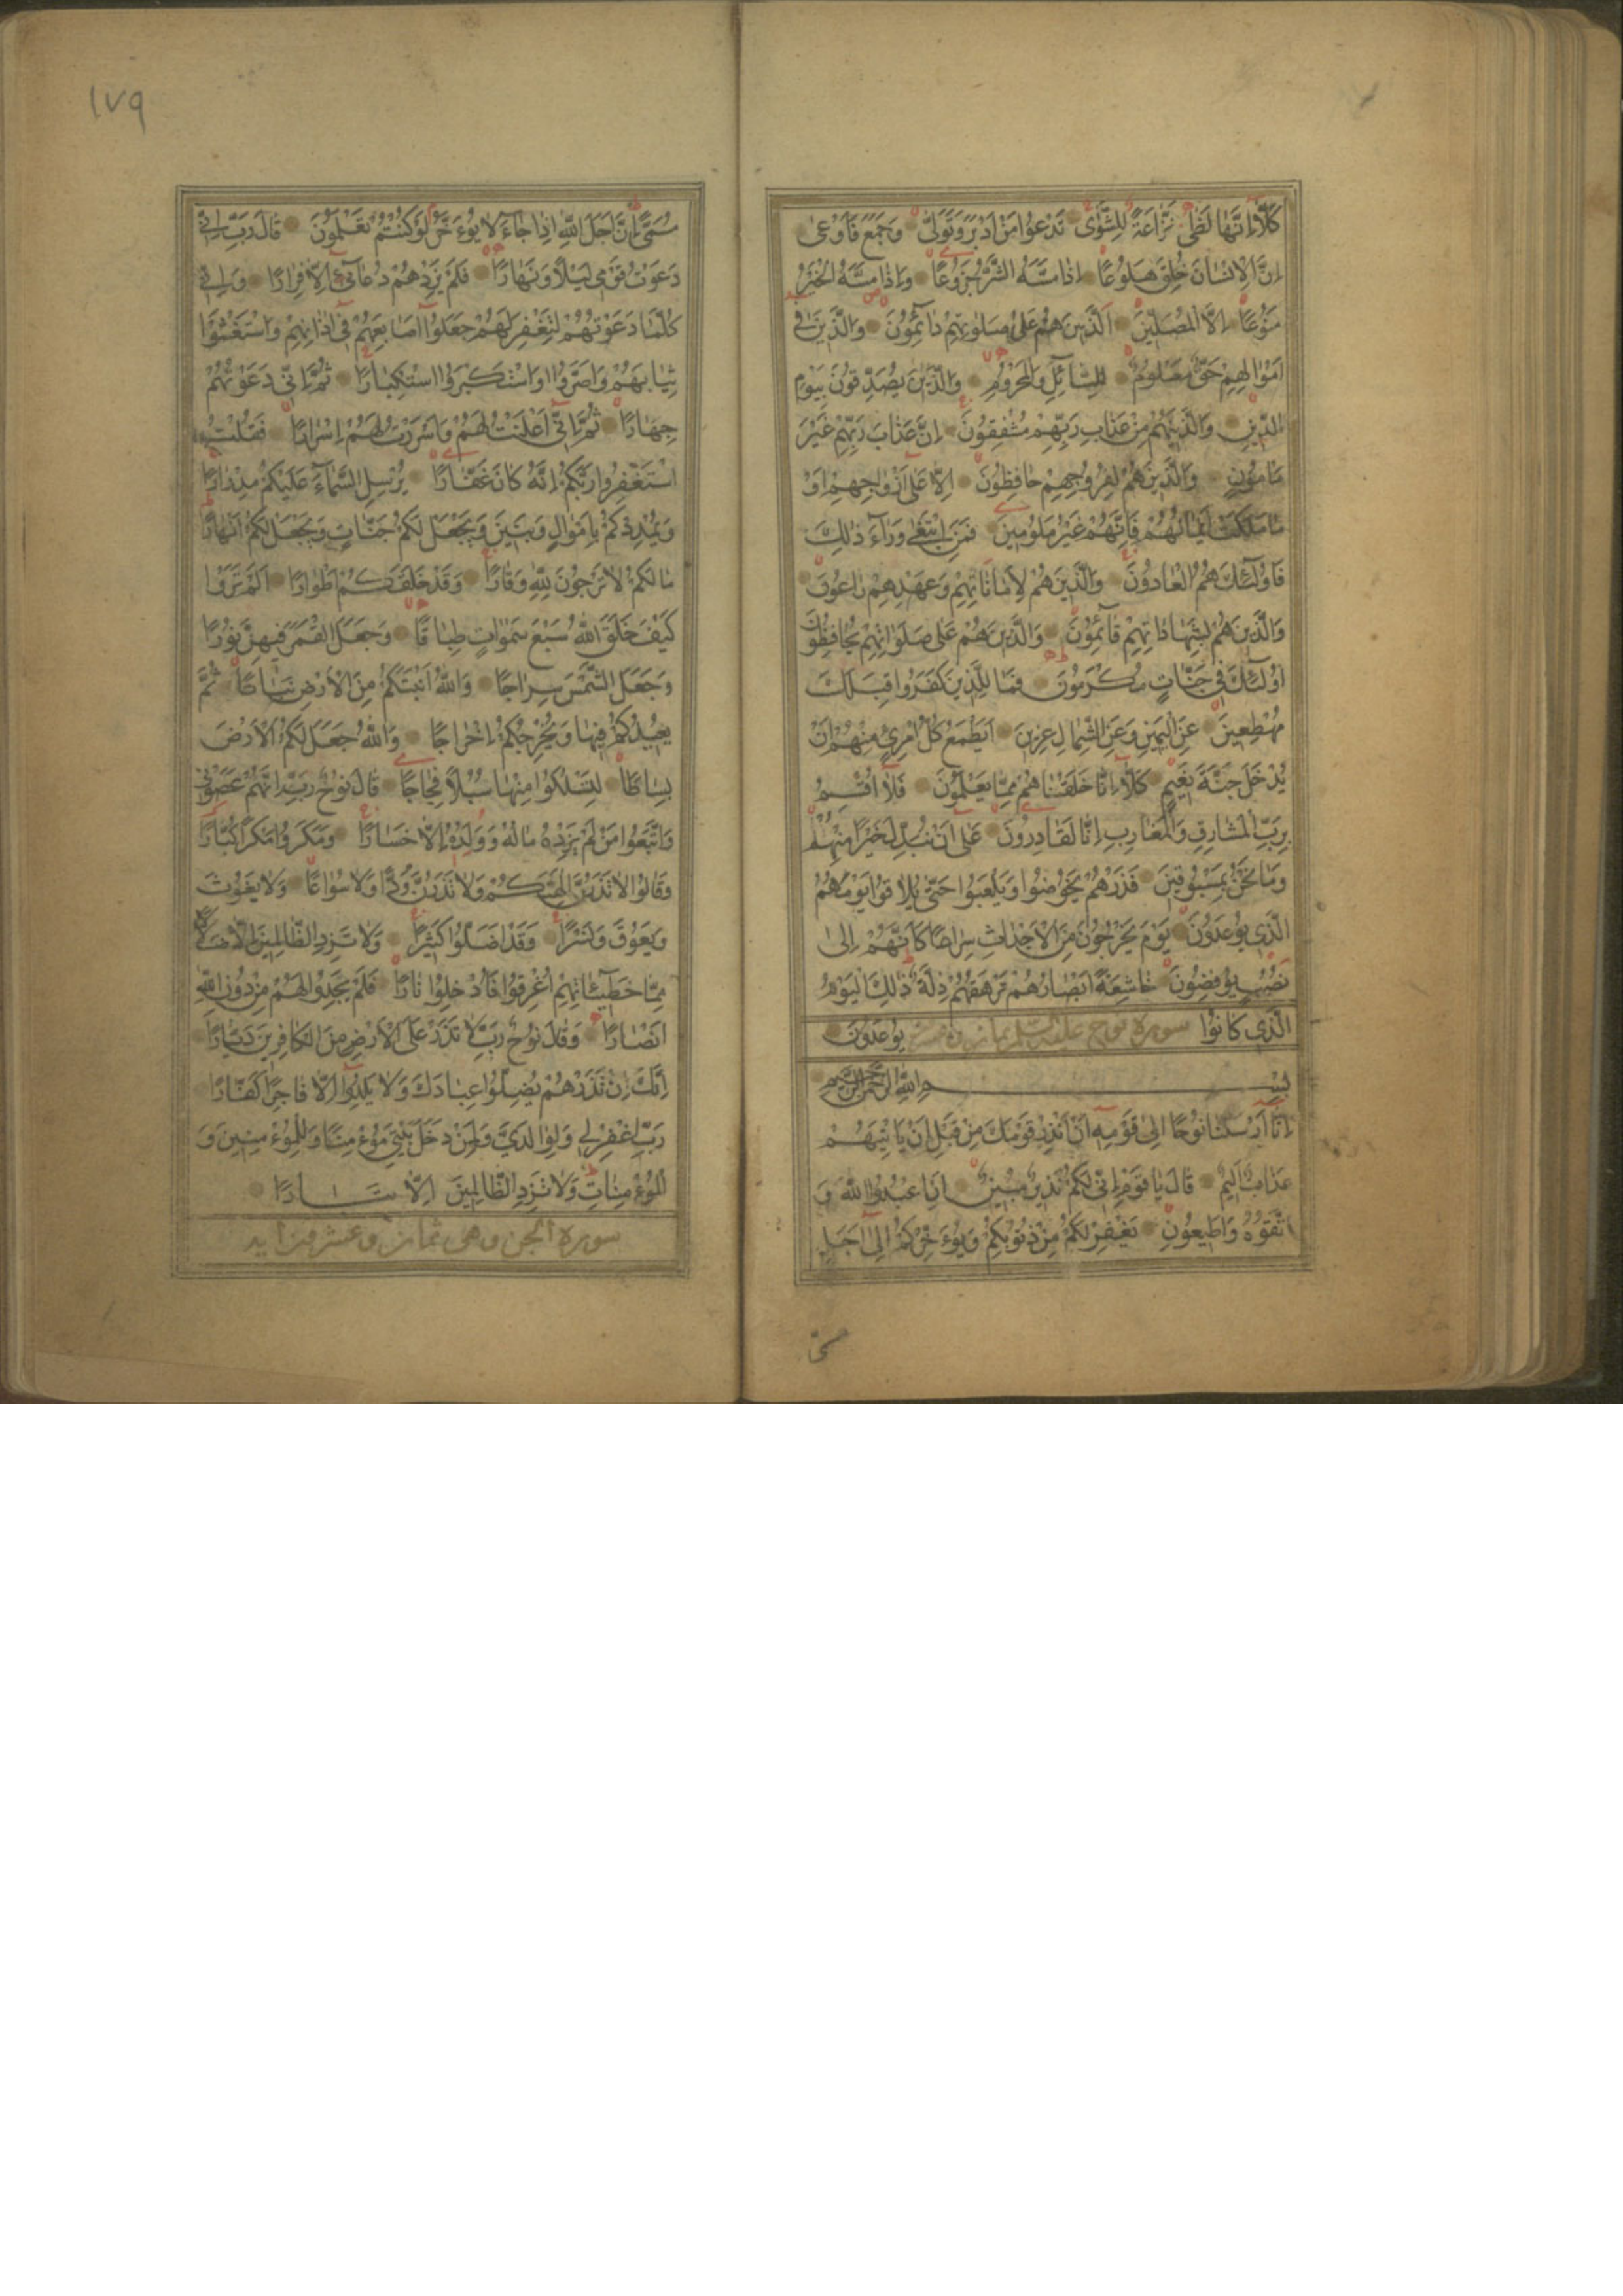 كَلَّا اِنَّهَا لَظٰى نَزَّاعَةً لِلشَّوٰى تَدْعُوا مَنْ اَدْبَرَ وَتَوَلّٰى وَجَمَعَ فَاَوْعٰى
اِنَّ الْاِنْسَانَ خُلِقَ هَلُوعًا اِذَا مَسَّهُ الشَّرُّ جَزُوعًا وَاِذَا مَسَّهُ الْخَيْرُ
مَنُوعًا اِلَّا الْمُصَلِّينَ اَلَّذِينَ هُمْ عَلٰى صَلَوتِهِمْ دَائِمُونَ وَالَّذِينَ فِى
اَمْوَالِهِمْ حَقٌّ مَعْلُومٌ لِلسَّائِلِ وَالْمَحْرُومِ وَالَّذِينَ يُصَدِّقُونَ بِيَوْمِ
الدِّينِ وَالَّذِينَ هُمْ مِنْ عَذَابِ رَبِّهِمْ مُشْفِقُونَ اِنَّ عَذَابَ رَبِّهِمْ غَيْرُ
مَاْمُونٍ وَالَّذِينَ هُمْ لِفُرُوجِهِمْ حَافِظُونَ اِلَّا عَلٰى اَزْوَاجِهِمْ اَوْ
مَا مَلَكَتْ اَيْمَانُهُمْ فَاِنَّهُمْ غَيْرُ مَلُومِينَ فَمَنِ ابْتَغٰى وَرَاءَ ذٰلِكَ
فَاُولٰئِكَ هُمُ الْعَادُونَ وَالَّذِينَ هُمْ لِاَمَانَاتِهِمْ وَعَهْدِهِمْ رَاعُونَ
وَالَّذِينَ هُمْ بِشَهَادَاتِهِمْ قَائِمُونَ وَالَّذِينَ هُمْ عَلٰى صَلَوَاتِهِمْ يُحَافِظُونَ
اُولٰئِكَ فِى جَنَّاتٍ مُكْرَمُونَ فَمَا لِلَّذِينَ كَفَرُوا قِبَلَكَ
مُهْطِعِينَ عَنِ الْيَمِينِ وَعَنِ الشِّمَالِ عِزِينَ اَيَطْمَعُ كُلُّ امْرِئٍ مِنْهُمْ اَنْ
يُدْخَلَ جَنَّةَ نَعِيمٍ كَلَّا اِنَّا خَلَقْنَاهُمْ مِمَّا يَعْلَمُونَ فَلَا اُقْسِمُ
بِرَبِّ الْمَشَارِقِ وَالْمَغَارِبِ اِنَّا لَقَادِرُونَ عَلٰى اَنْ نُبَدِّلَ خَيْرًا مِنْهُمْ
وَمَا نَحْنُ بِمَسْبُوقِينَ فَذَرْهُمْ يَخُوضُوا وَيَلْعَبُوا حَتّٰى يُلَاقُوا يَوْمَهُمُ
الَّذِى يُوعَدُونَ يَوْمَ يَخْرُجُونَ مِنَ الْاَجْدَاثِ سِرَاعًا كَاَنَّهُمْ اِلٰى
نُصُبٍ يُوفِضُونَ خَاشِعَةً اَبْصَارُهُمْ تَرْهَقُهُمْ ذِلَّةٌ ذٰلِكَ الْيَوْمُ
الَّذِى كَانُوا يُوعَدُونَ
سورة نوح عليه السلم
بِسْمِ اللّٰهِ الرَّحْمٰنِ الرَّحِيمِ
اِنَّا اَرْسَلْنَا نُوحًا اِلٰى قَوْمِهِ اَنْ اَنْذِرْ قَوْمَكَ مِنْ قَبْلِ اَنْ يَاْتِيَهُمْ
عَذَابٌ اَلِيمٌ قَالَ يَا قَوْمِ اِنِّى لَكُمْ نَذِيرٌ مُبِينٌ اَنِ اعْبُدُوا اللّٰهَ وَ
اتَّقُوهُ وَاَطِيعُونِ يَغْفِرْ لَكُمْ مِنْ ذُنُوبِكُمْ وَيُؤَخِّرْكُمْ اِلٰى اَجَلٍ
١٧٩
مُسَمًّى اِنَّ اَجَلَ اللّٰهِ اِذَا جَاءَ لَا يُؤَخَّرُ لَوْ كُنْتُمْ تَعْلَمُونَ قَالَ رَبِّ اِنِّى
دَعَوْتُ قَوْمِى لَيْلًا وَنَهَارًا فَلَمْ يَزِدْهُمْ دُعَائِى اِلَّا فِرَارًا وَاِنِّى
كُلَّمَا دَعَوْتُهُمْ لِتَغْفِرَ لَهُمْ جَعَلُوا اَصَابِعَهُمْ فِى اٰذَانِهِمْ وَاسْتَغْشَوْا
ثِيَابَهُمْ وَاَصَرُّوا وَاسْتَكْبَرُوا اسْتِكْبَارًا ثُمَّ اِنِّى دَعَوْتُهُمْ
جِهَارًا ثُمَّ اِنِّى اَعْلَنْتُ لَهُمْ وَاَسْرَرْتُ لَهُمْ اِسْرَارًا فَقُلْتُ
اسْتَغْفِرُوا رَبَّكُمْ اِنَّهُ كَانَ غَفَّارًا يُرْسِلِ السَّمَاءَ عَلَيْكُمْ مِدْرَارًا
وَيُمْدِدْكُمْ بِاَمْوَالٍ وَبَنِينَ وَيَجْعَلْ لَكُمْ جَنَّاتٍ وَيَجْعَلْ لَكُمْ اَنْهَارًا
مَا لَكُمْ لَا تَرْجُونَ لِلّٰهِ وَقَارًا وَقَدْ خَلَقَكُمْ اَطْوَارًا اَلَمْ تَرَوْا
كَيْفَ خَلَقَ اللّٰهُ سَبْعَ سَمٰوَاتٍ طِبَاقًا وَجَعَلَ الْقَمَرَ فِيهِنَّ نُورًا
وَجَعَلَ الشَّمْسَ سِرَاجًا وَاللّٰهُ اَنْبَتَكُمْ مِنَ الْاَرْضِ نَبَاتًا ثُمَّ
يُعِيدُكُمْ فِيهَا وَيُخْرِجُكُمْ اِخْرَاجًا وَاللّٰهُ جَعَلَ لَكُمُ الْاَرْضَ
بِسَاطًا لِتَسْلُكُوا مِنْهَا سُبُلًا فِجَاجًا قَالَ نُوحٌ رَبِّ اِنَّهُمْ عَصَوْنِى
وَاتَّبَعُوا مَنْ لَمْ يَزِدْهُ مَالُهُ وَوَلَدُهُ اِلَّا خَسَارًا وَمَكَرُوا مَكْرًا كُبَّارًا
وَقَالُوا لَا تَذَرُنَّ اٰلِهَتَكُمْ وَلَا تَذَرُنَّ وَدًّا وَلَا سُوَاعًا وَلَا يَغُوثَ
وَيَعُوقَ وَنَسْرًا وَقَدْ اَضَلُّوا كَثِيرًا وَلَا تَزِدِ الظَّالِمِينَ اِلَّا ضَلَالًا
مِمَّا خَطِيئَاتِهِمْ اُغْرِقُوا فَاُدْخِلُوا نَارًا فَلَمْ يَجِدُوا لَهُمْ مِنْ دُونِ اللّٰهِ
اَنْصَارًا وَقَالَ نُوحٌ رَبِّ لَا تَذَرْ عَلَى الْاَرْضِ مِنَ الْكَافِرِينَ دَيَّارًا
اِنَّكَ اِنْ تَذَرْهُمْ يُضِلُّوا عِبَادَكَ وَلَا يَلِدُوا اِلَّا فَاجِرًا كَفَّارًا
رَبِّ اغْفِرْ لِى وَلِوَالِدَىَّ وَلِمَنْ دَخَلَ بَيْتِىَ مُؤْمِنًا وَلِلْمُؤْمِنِينَ وَ
الْمُؤْمِنَاتِ وَلَا تَزِدِ الظَّالِمِينَ اِلَّا تَبَارًا
سورة الجن وهى ثمان وعشرون اية